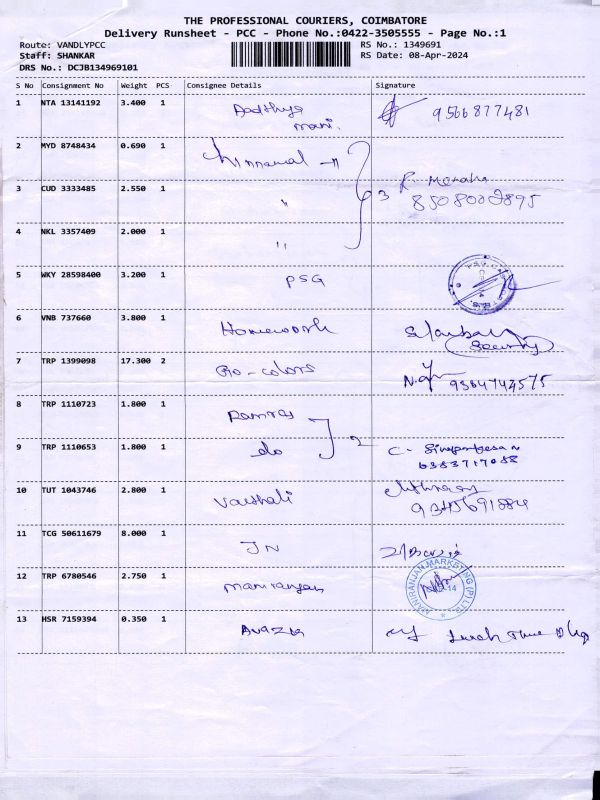 THE PROFESSIONAL COURIERS, COIMBATORE
Delivery Runsheet - PCC - Phone No.:0422-3505555 - Page No.:1
Route: VANDLYPCC RS No.: 1349691
Staff: SHANKAR RS Date: 08-Apr-2024
DRS No.: DCJB134969101
S No Consignment No Weight PCS Consignee Details Signature
1 NTA 13141192 3.400 1 9566877481
mani.
2 MYD 8748434 0.690 1
3 CUD 3333485 2.550 1 " 3 R.
4 NKL 3357409 2.000 1 "
5 WKY 28598400 3.200 1 PSG
6 VNB 737660 3.800 1 Homework
Security
7 TRP 1399098 17.300 2 Pro-colors
8 TRP 1110723 1.800 1 Ramraj
9 TRP 1110653 1.800 1 do 2 C.
6383717088
10 TUT 1043746 2.800 1 Vaishali
11 TCG 50611679 8.000 1 JN
12 TRP 6780546 2.750 1 maniranjan MANIRANJAN MARKETING (P) LTD.
13 HSR 7159394 0.350 1